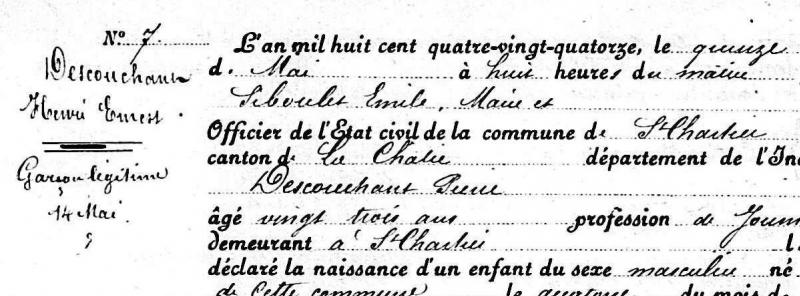 No 7.
Descouchant
Henri Ernest
Garçon légitime
14 Mai
L'an mil huit cent quatre-vingt-quatorze, le quinze
d. Mai à huit heures du matin
Siboulet Emile, Maire et
Officier de l'Etat civil de la commune de St Chartier
canton de La Châtre département de l'In
Descouchant Pierre
âgé vingt trois ans profession de Journ
demeurant à St Chartier l
déclaré la naissance d'un enfant du sexe masculin né.
de cette commune le quatorze du mois de